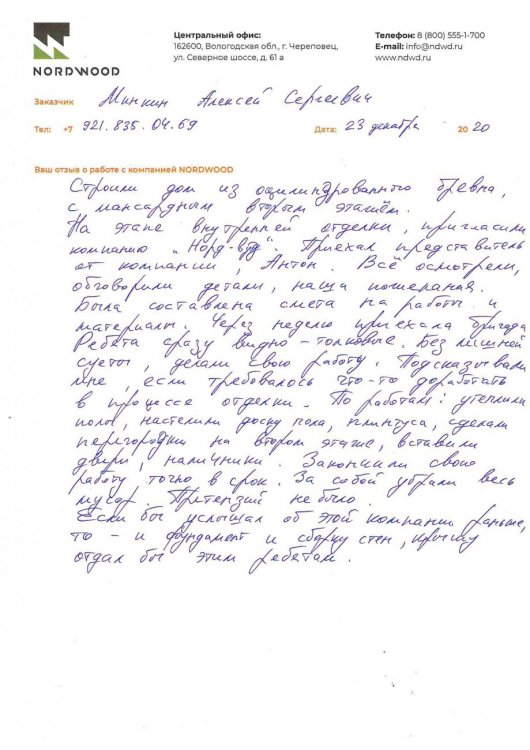 NORDWOOD
Центральный офис:
162600, Вологодская обл., г. Череповец,
ул. Северное шоссе, д. 61 а
Телефон: 8 (800) 555-1-700
E-mail: info@ndwd.ru
www.ndwd.ru
Заказчик Минкин Алексей Сергеевич
Тел: +7 921.835.04.69 Дата: 23 декабря 2020
Ваш отзыв о работе с компанией NORDWOOD
Строили дом из оцилиндрованного бревна,
с мансардным вторым этажом.
На этапе внутренней отделки, пригласили
компанию „Норд-вуд". Приехал представитель
от компании Антон. Всё осмотрели,
обговорили детали, наши пожелания.
Была составлена смета на работы и
материалы. Через неделю приехала бригада.
Ребята сразу видно - толковые. Без лишней
суеты, делали свою работу. Подсказывали
мне, если требовалось что-то доработать
в процессе отделки. По работам: утеплили
полы, настелили доску пола, плинтуса, сделали
перегородки на втором этаже, вставили
двери, наличники. Закончили свою
работу точно в срок. За собой убрали весь
мусор. Притензий не было.
Если бы услышал об этой компании раньше,
то - и фундамент и сборку стен, крышу
отдал бы этим ребятам.